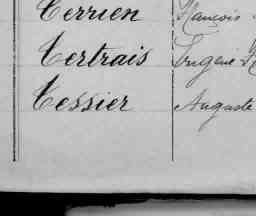 Terrien François
Tertrais Eugène
Tessier Auguste